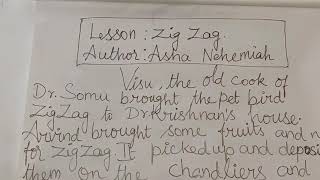 Lesson : Zig Zag.
Author : Asha Nehemiah
Visu, the old cook of
Dr. Somu brought the pet bird
ZigZag to Dr Krishnan's house.
Arvind brought some fruits and n
for ZigZag. It picked up and deposi
them on the chandliers and